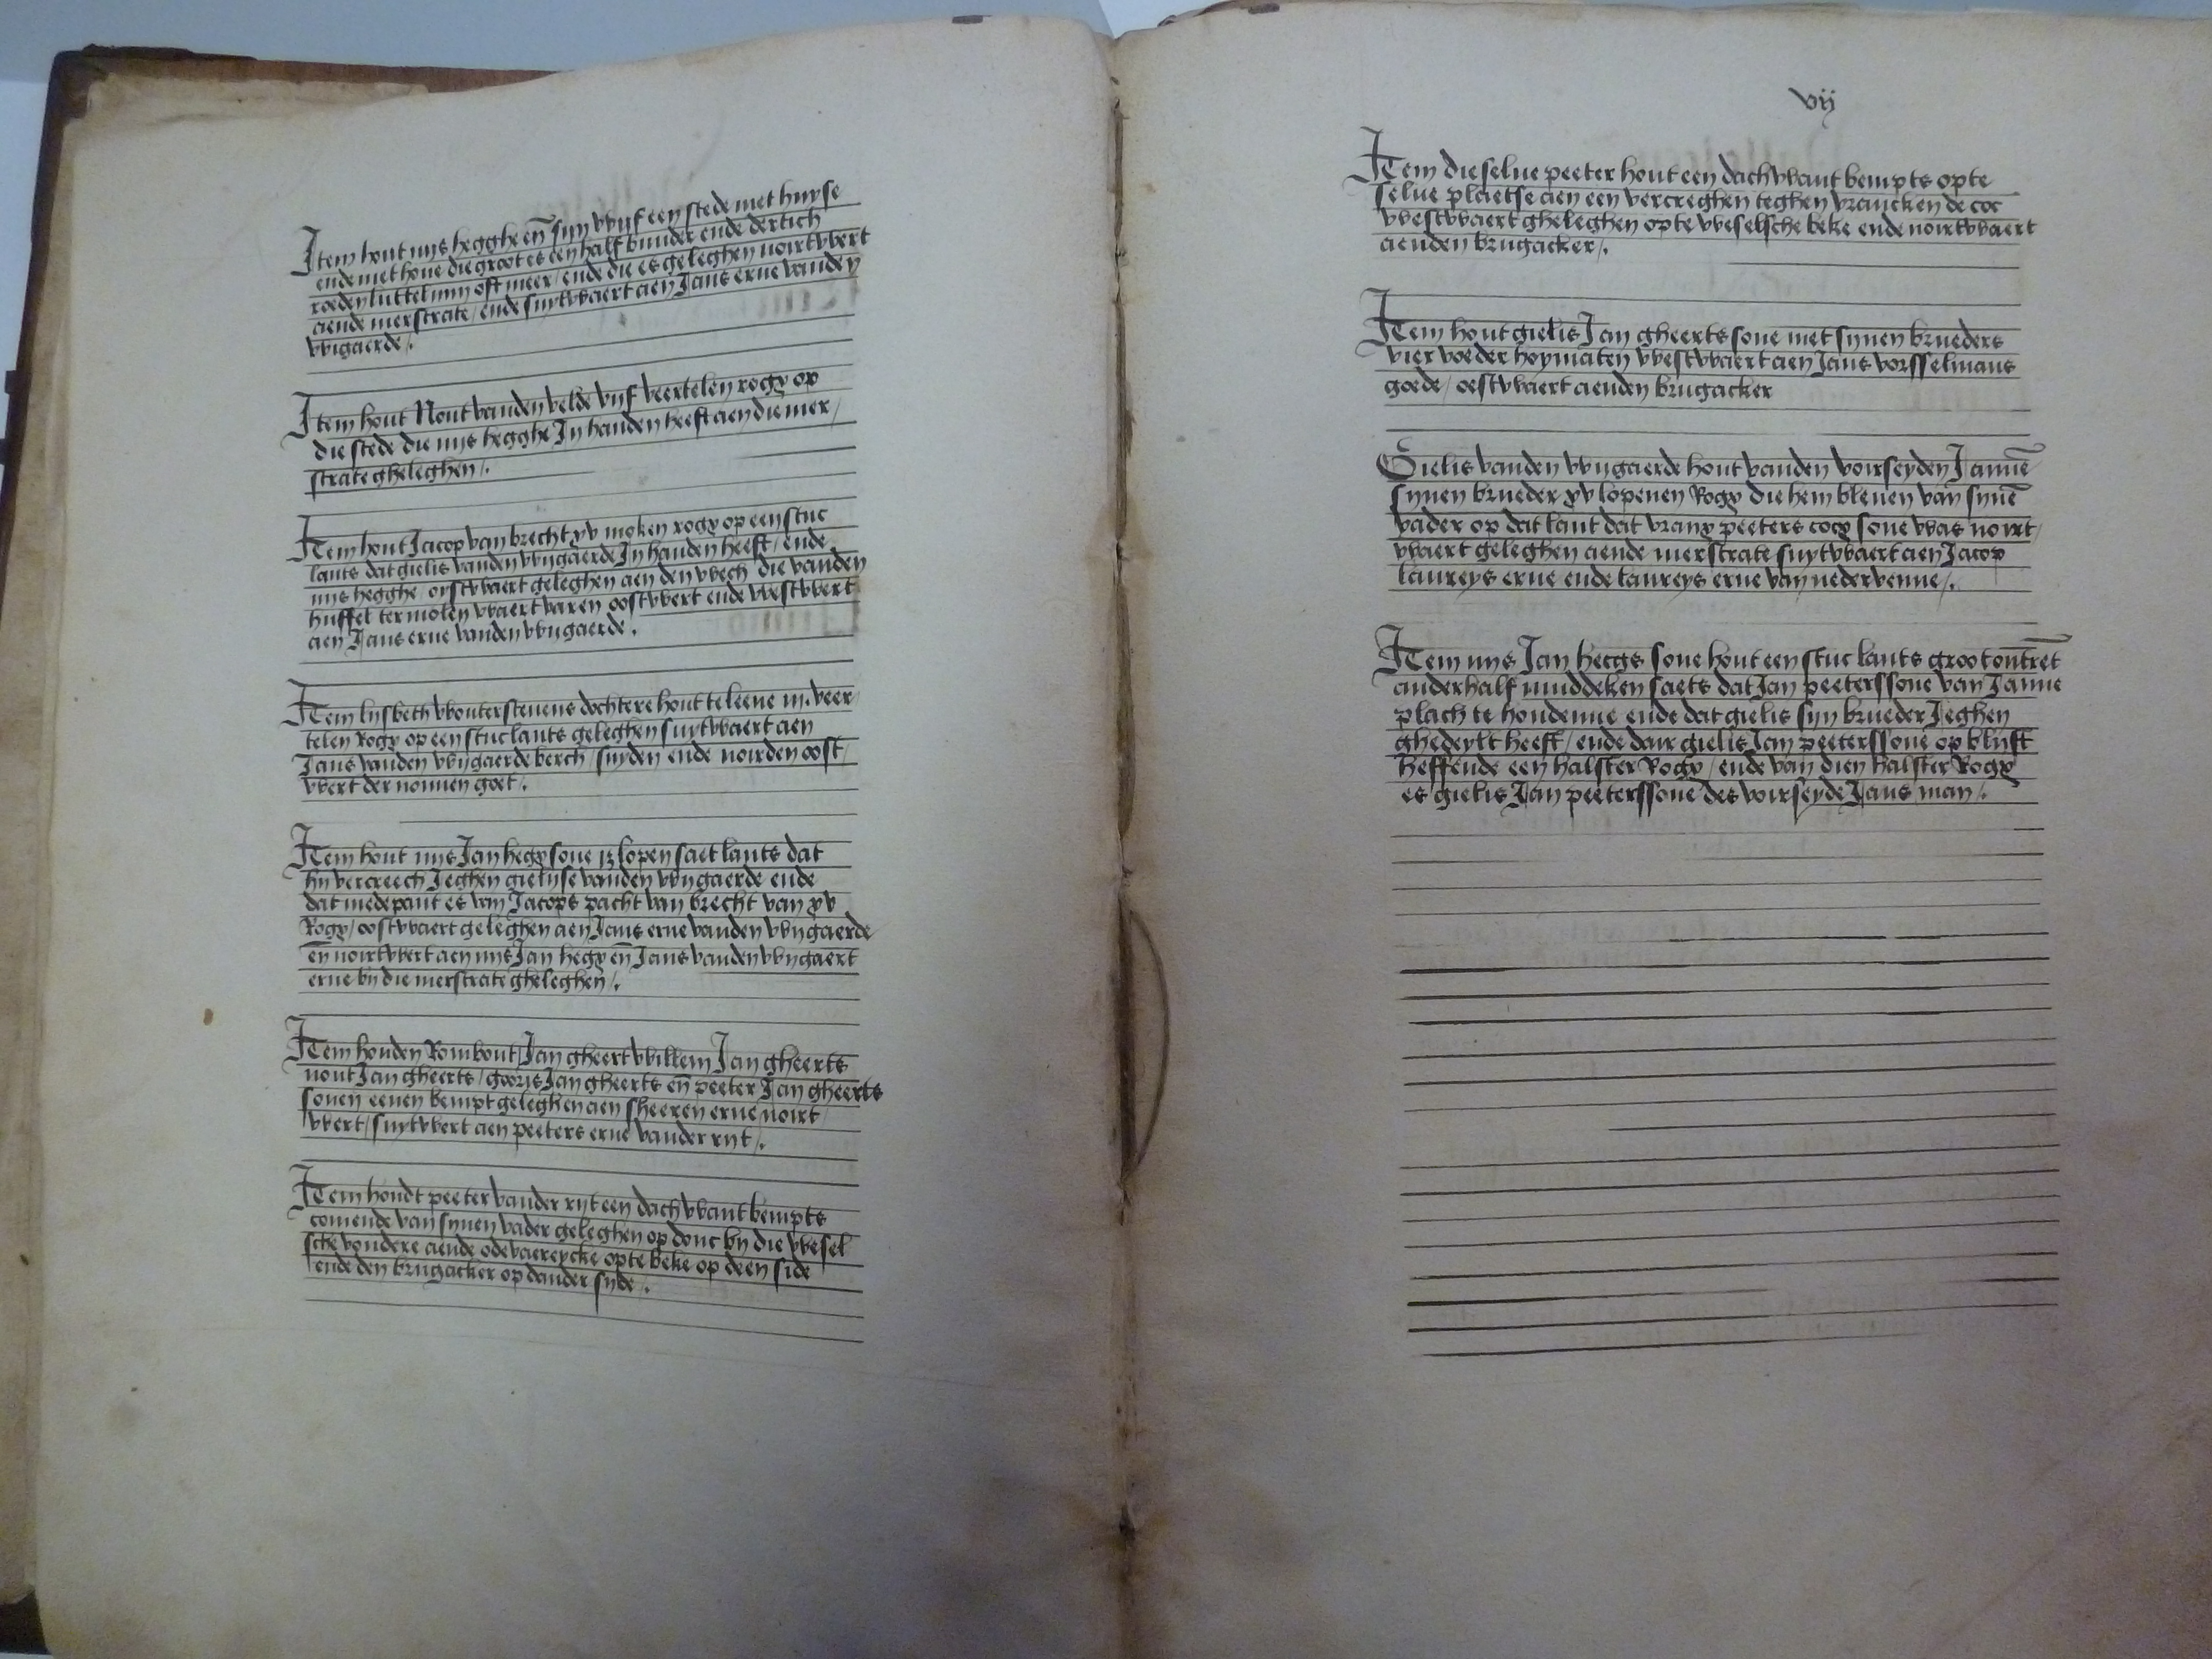 Item hout nys hegghe en̄ syn wyf een stede met huyse
ende met houe die groot es een half bunder ende dertich
roeden luttel myn oft meer / ende die es geleghen noirtwert
aende merstrate / ende suytwaert aen Jans erue vanden
wigaerde /.
Item hout Nout vanden velde vyf veertelen rogx op
die stede die nys hegghe Jn handen heeft aen die mer /
strate gheleghen /.
Item hout Jacop van brecht xv moken rogx op een stuc
lants dat gielis vanden wyngaerde Jn handen heeft / ende
nys hegghe / oistwaert geleghen aen den wech die vanden
huffel ter molen waert varen oostwert ende westwert
aen Jans erue vanden wyngaerde .
Item lysbeth woutersteuens dochtere hout te leene iij. veer
telen Rogx op een stuc lants geleghen suytwaert aen
Jans vanden wyngaerde berch / suyden ende noirden oost /
wert der nonnen goet .
Item hout nys Jan hegx sone lopen saet lants dat
hy vercreech Jeghen gielyse vanden wyngaerde ende
dat medepant es van Jacops pacht van brecht van xv
Rogx / oostwaert geleghen aen Jans erue vanden wyngaerde
en̄ noirtwert aen nys Jan hegx en̄ Jans vanden wyngaert
erue by die merstrate gheleghen /.
Item houden Rombout Jan gheert willem Jan gheerts
nout Jan gheerts / gooris Jan gheerts en̄ peeter Jan gheerts
sonen eenen bempt geleghen aen sheeren erue noirt
wert / suytwert aen peeters erue vander ryt /.
Item houdt peeter vander ryt een dachwant bempts
comende van synen vader geleghen op donc by die wesel
sche vondere aende odevaereycke opte beke op deen side
ende den brugacker op dander syde .
vij
Item die selue peeter hout een dachwant bempts opte
selue plaetse aen een vercreghen teghen vrancken de coc
westwaert gheleghen opte weselsche beke ende noirtwaert
aenden brugacker /.
Item hout gielis Jan gheerts sone met synen brueders
vier voeder hoymaten westwaert aen Jans vorsselmans
goede / oestwaert aenden brugacker
Gielis vanden wyngaerde hout vanden voirseyden Jannē
synen brueder xv lopenen Rogx die hem bleuen van synē
vader op dat lant dat vranx peeters cocx sone was noirt /
waert geleghen aende merstrate suytwaert aen Jacop
laureys erue ende laureys erue van nedervenne /.
Item nys Jan hecgs sone hout een stuc lants groot ontrēt
anderhalf muddeken saets dat Jan peeterssone van Janne
plach te houdenne ende dat gielis syn brueder Jeghen
ghedeylt heeft / ende dair gielis Jan peeterssone op blyft
heffende een halster Rogx / ende van dien halster Rogx
es gielis Jan peeterssone des voirseyde Jans man /.